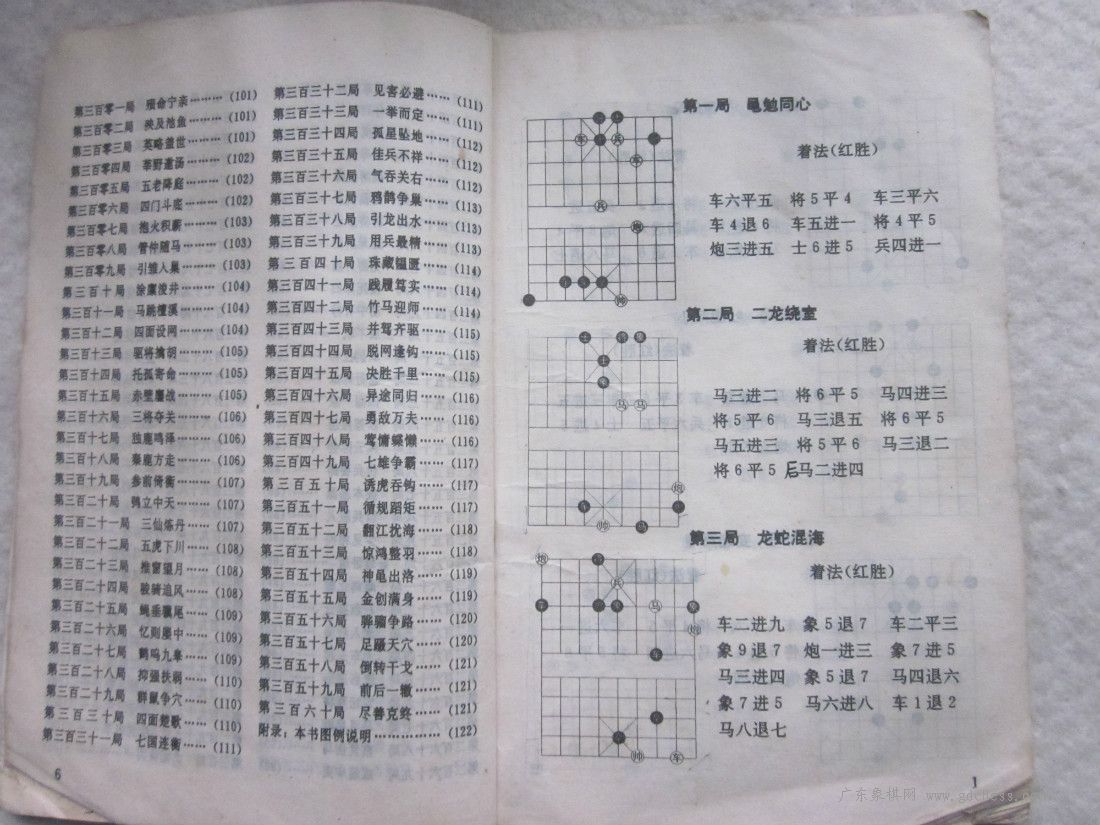 第三百零一局 殒命宁亲………(101)
第三百零二局 殃及池鱼………(101)
第三百零三局 英略盖世………(101)
第三百零四局 莘野遨汤………(102)
第三百零五局 五老降庭………(102)
第三百零六局 四门斗底………(102)
第三百零七局 抱火积薪………(103)
第三百零八局 管仲随马………(103)
第三百零九局 引雏入巢………(103)
第三百一十局 涂廪浚井………(104)
第三百十一局 马跳檀溪………(104)
第三百十二局 四面设网………(104)
第三百十三局 驱将擒胡………(105)
第三百十四局 托孤寄命………(105)
第三百十五局 赤壁鏖战………(105)
第三百十六局 三将夺关………(106)
第三百十七局 独鹿鸣泽………(106)
第三百十八局 秦鹿方走………(106)
第三百十九局 参前倚衡………(107)
第三百二十局 鹗立中天………(107)
第三百二十一局 三仙炼丹……(107)
第三百二十二局 五虎下川……(108)
第三百二十三局 推窗望月……(108)
第三百二十四局 骏骑追风……(108)
第三百二十五局 蝇垂骥尾……(109)
第三百二十六局 忆则屡中……(109)
第三百二十七局 鹤鸣九皋……(109)
第三百二十八局 抑强扶弱……(110)
第三百二十九局 群鼠争穴……(110)
第三百三十局 四面楚歌……(110)
第三百三十一局 七国连衡……(111)
6
第三百三十二局 见害必避……(111)
第三百三十三局 一举而定……(111)
第三百三十四局 孤星坠地……(112)
第三百三十五局 佳兵不祥……(112)
第三百三十六局 气吞关右……(112)
第三百三十七局 鸦鹊争巢……(113)
第三百三十八局 引龙出水……(113)
第三百三十九局 用兵最精……(113)
第三百四十局 珠藏韫匮……(114)
第三百四十一局 践履笃实……(114)
第三百四十二局 竹马迎师……(114)
第三百四十三局 并驾齐驱……(115)
第三百四十四局 脱网逢钩……(115)
第三百四十五局 决胜千里……(115)
第三百四十六局 异途同归……(116)
第三百四十七局 勇敌万夫……(116)
第三百四十八局 莺慵蝶懒……(116)
第三百四十九局 七雄争霸……(117)
第三百五十局 诱虎吞钩……(117)
第三百五十一局 循规蹈矩……(117)
第三百五十二局 翻江扰海……(118)
第三百五十三局 惊鸿整羽……(118)
第三百五十四局 神龟出洛……(119)
第三百五十五局 金创满身……(119)
第三百五十六局 骅骝争路……(120)
第三百五十七局 足蹑天穴……(120)
第三百五十八局 倒转干戈……(121)
第三百五十九局 前后一辙……(121)
第三百六十局 尽善克终……(121)
附录：本书图例说明……………(122)
第一局 黾勉同心
着法(红胜)
车六平五 将5平4 车三平六
车4退6 车五进一 将4平5
炮三进五 士6进5 兵四进一
第二局 二龙绕室
着法(红胜)
马三进二 将6平5 马四进三
将5平6 马三退五 将6平5
马五进三 将5平6 马三退二
将6平5 后马二进四
第三局 龙蛇混海
着法(红胜)
车二进九 象5退7 车二平三
象9退7 炮一进三 象7进5
马三进四 象5退7 马四退六
象7进5 马六进八 车1退2
马八退七
1
广东象棋网